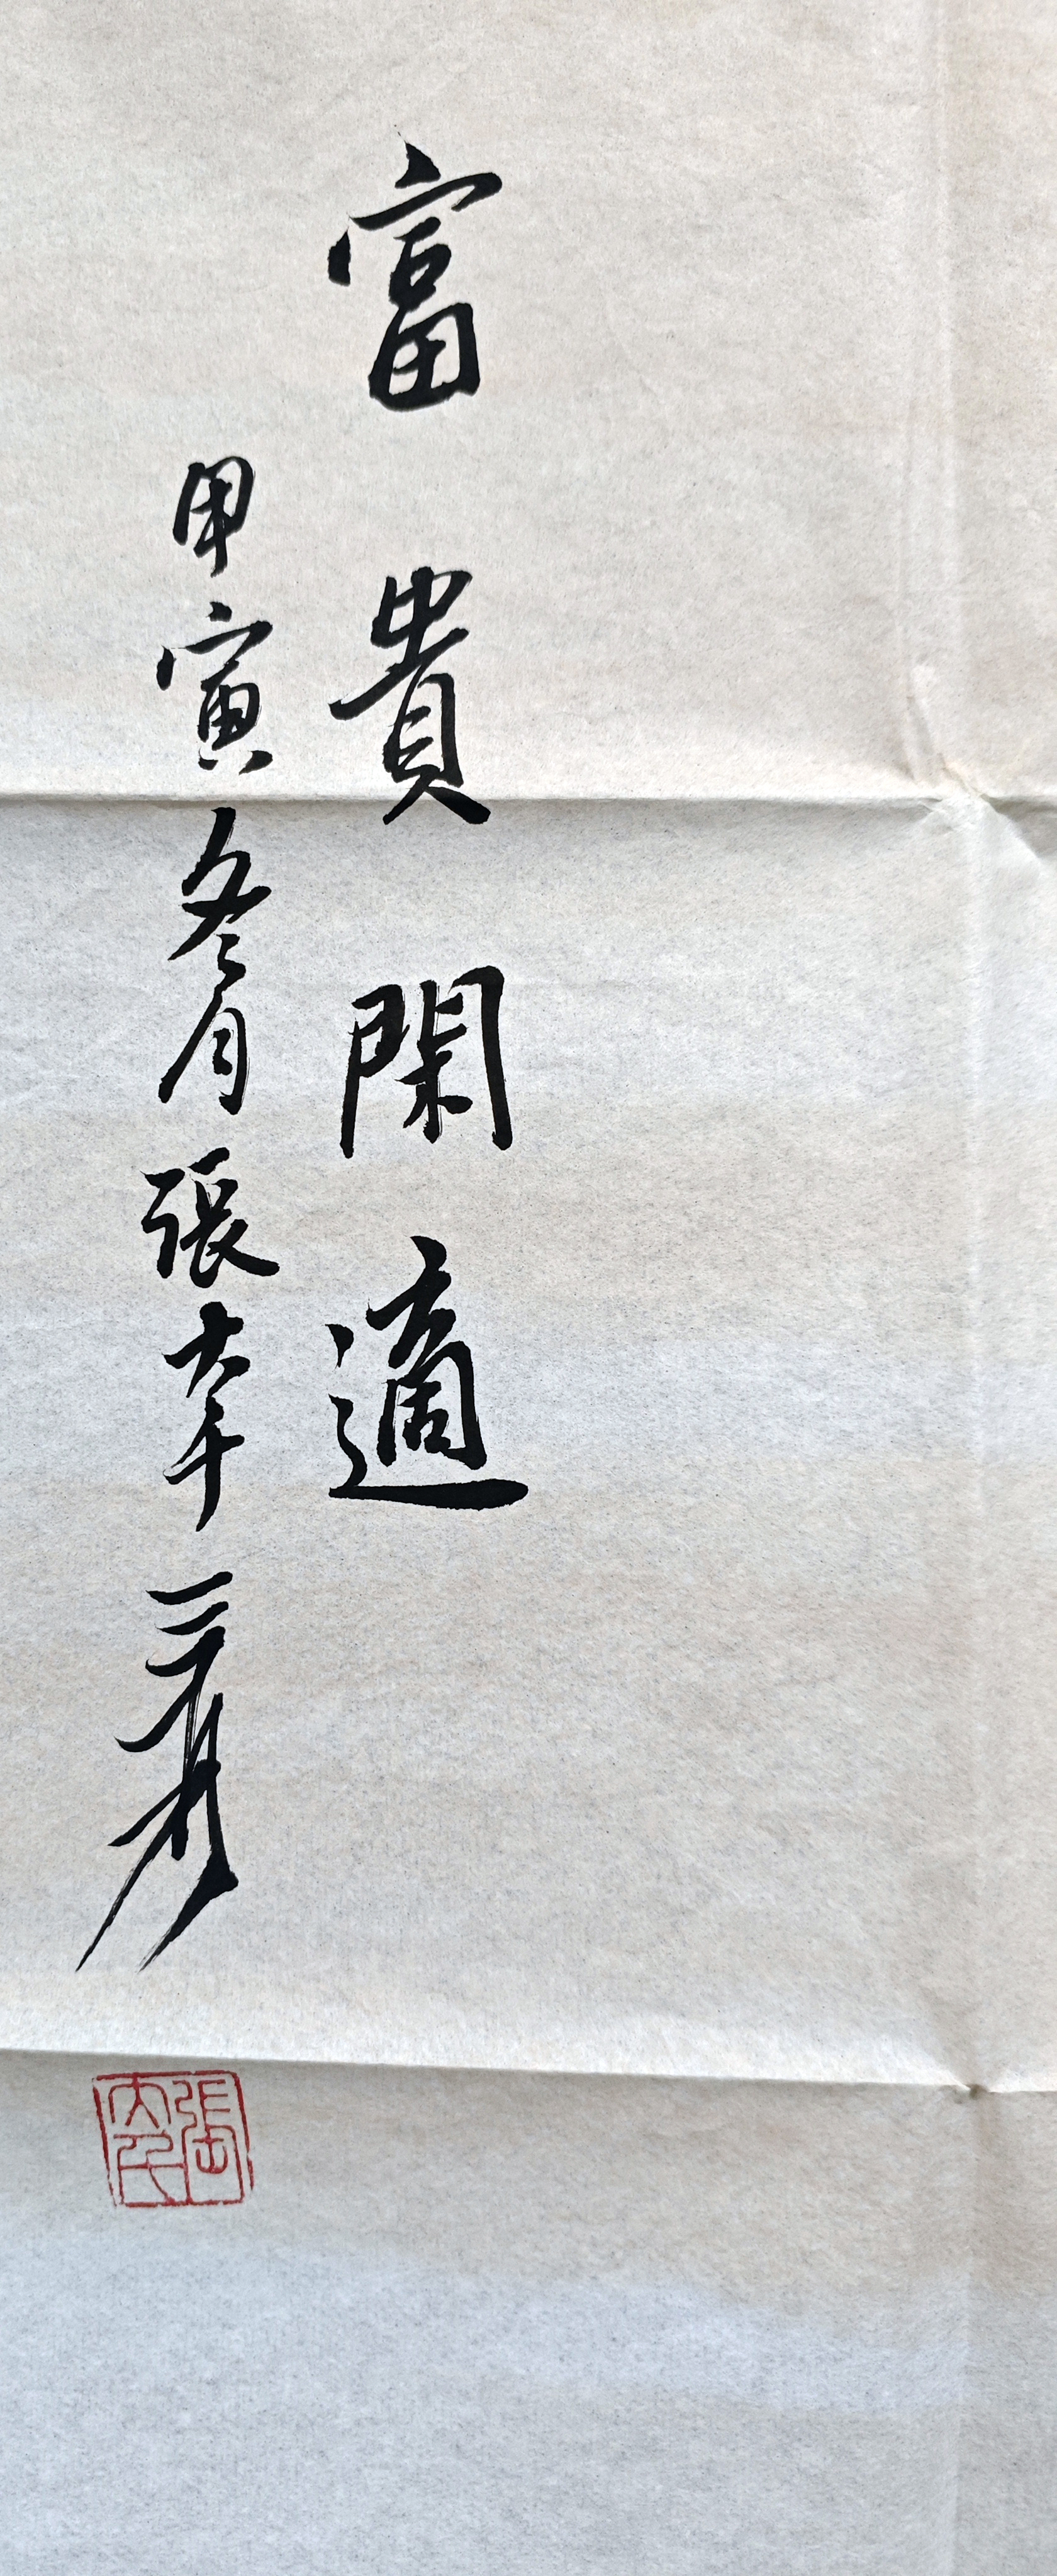 富貴閑適
甲寅冬月張大千爰